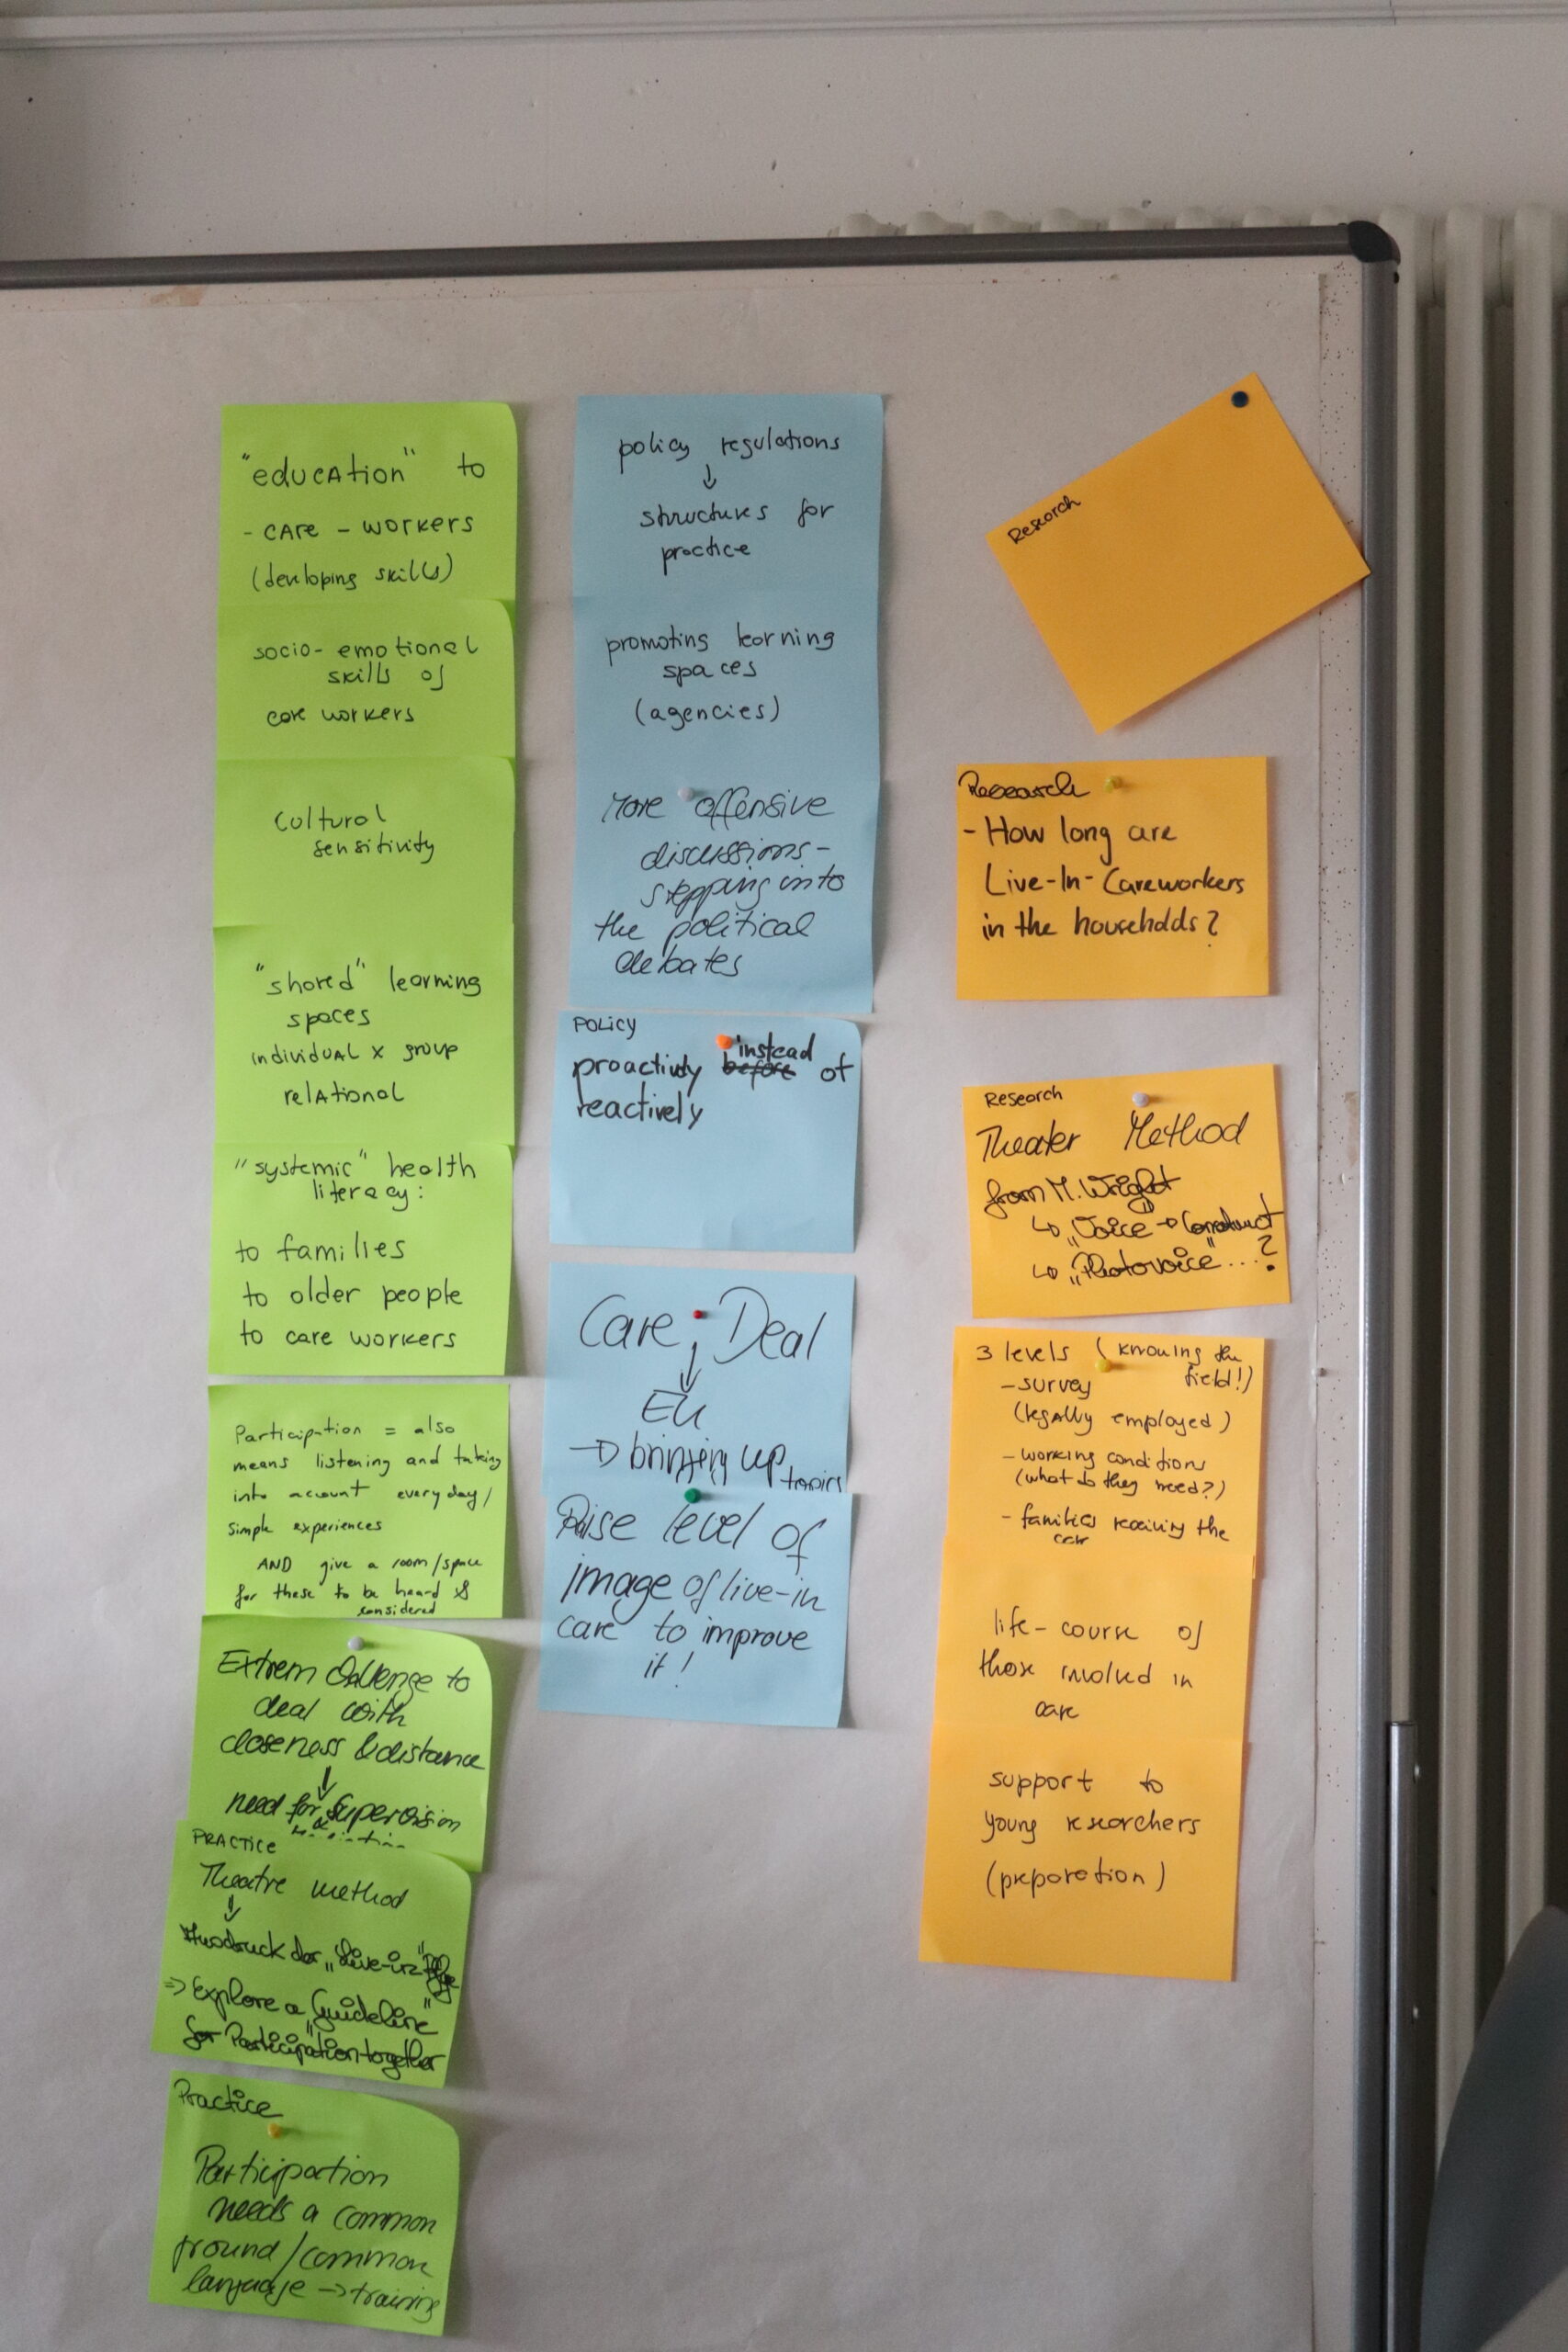 "education" to
- care - workers
(developing skills)
socio-emotional
skills of
care workers
Cultural
sensitivity
"shared" learning
spaces
individual x group
relational
"systemic" health
literacy:
to families
to older people
to care workers
Participation = also
means listening and taking
into account everyday/
simple experiences
AND give a room/space
for these to be heard &
considered
Extrem Challenge to
deal with
closeness & distance
↓
need for Supervision
&
PRACTICE
Theatre method
↓
Ausdruck der „Live-in"
=> Explore a „Guideline"
for Participation together
Practice
Participation
needs a common
ground/common
language → training
policy regulations
↓
structures for
practice
promoting learning
spaces
(agencies)
More offensive
discussions -
stepping into
the political
debates
POLICY
proactively instead of
reactively
Care Deal
↓
EU
→ bringing up topics
Raise level of
image of live-in
care to improve
it!
Research
Research
- How long are
Live-In-Careworkers
in the households?
Research
Theater Method
from M. Wright
↳ „Voice → Construct
↳ „Photovoice" ...?
3 levels (knowing the
field!)
- survey
(legally employed)
- working conditions
(what do they need?)
- families receiving the
care
life-course of
those involved in
care
support to
young researchers
(preparation)